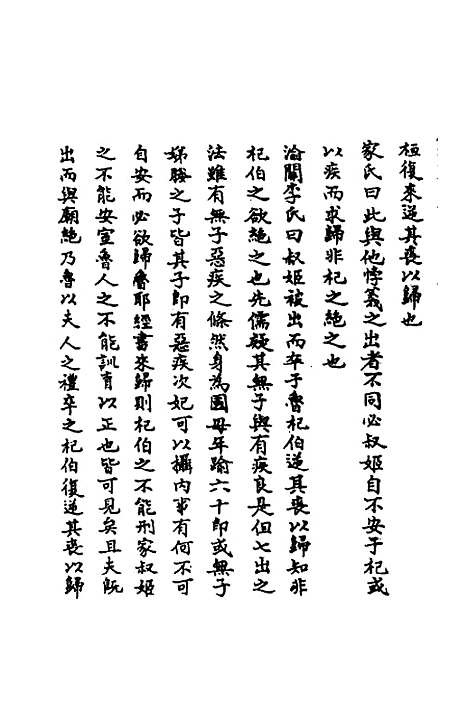 桓復来逆其喪以歸也
家氏曰此與他悖義之出者不同必叔姬自不安于杞或
以疾而求歸非杞之絶之也
淪關李氏曰叔姬被出而卒于魯杞伯逆其喪以歸知非
杞伯之欲絶之也先儒疑其無子與有疾良是但七出之
法雖有無子惡疾之條然身為國母年踰六十即或無子
娣媵之子皆其子即有惡疾次妃可以攝内事有何不可
自安而必欲歸魯耶經書來歸則杞伯之不能刑家叔姬
之不能安室魯人之不能訓育以正也皆可見矣且夫既
出而與廟絶乃魯以夫人之禮卒之杞伯復逆其喪以歸